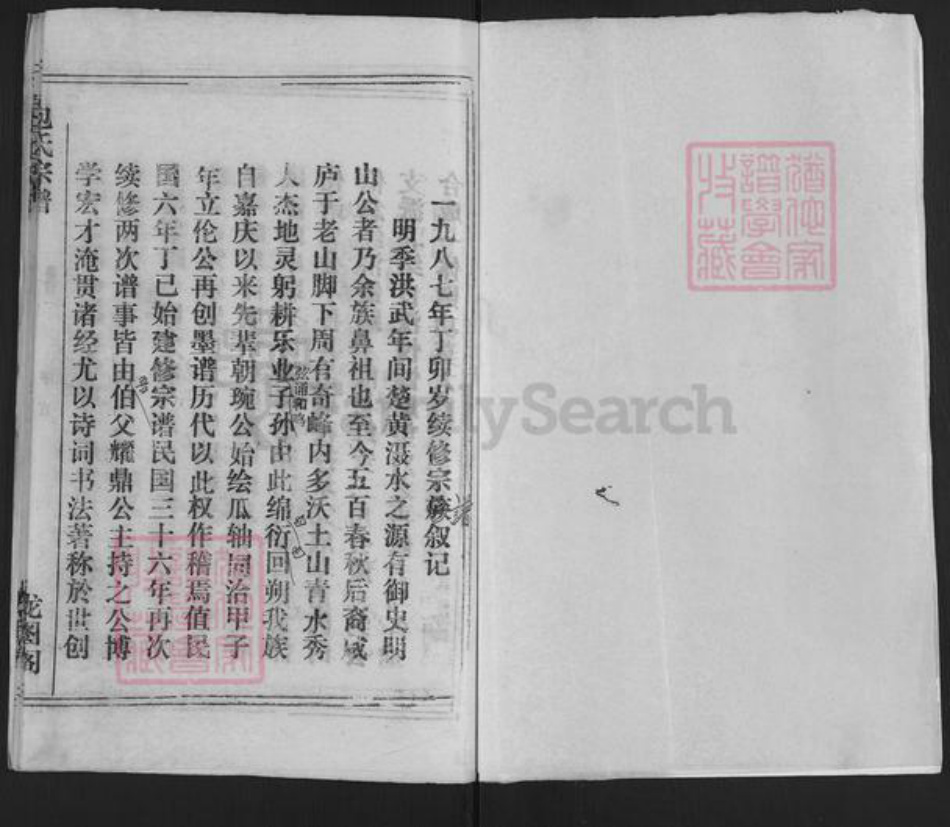 一九八七年丁卯岁续修宗簇叙记
谱
明季洪武年间楚黄滠水之源有御史明
山公者乃余簇鼻祖也至今五百春秋后裔咸
庐于老山脚下周有奇峰内多沃土山青水秀
人杰地灵躬耕乐业子孙由此绵衍回朔我簇
弦诵和鸣
自嘉庆以来先辈朝琬公始绘瓜轴同治甲子
年立伦公再创墨谱历代以此权作稽焉值民
国六年丁已始建修宗谱民国三十六年再次
续修两次谱事皆由伯父耀鼎公主持之公博
学宏才淹贯诸经尤以诗词书法著称於世创
包氏宗谱
龙图阁
猶他家
譜學會
收藏
FamilySearch